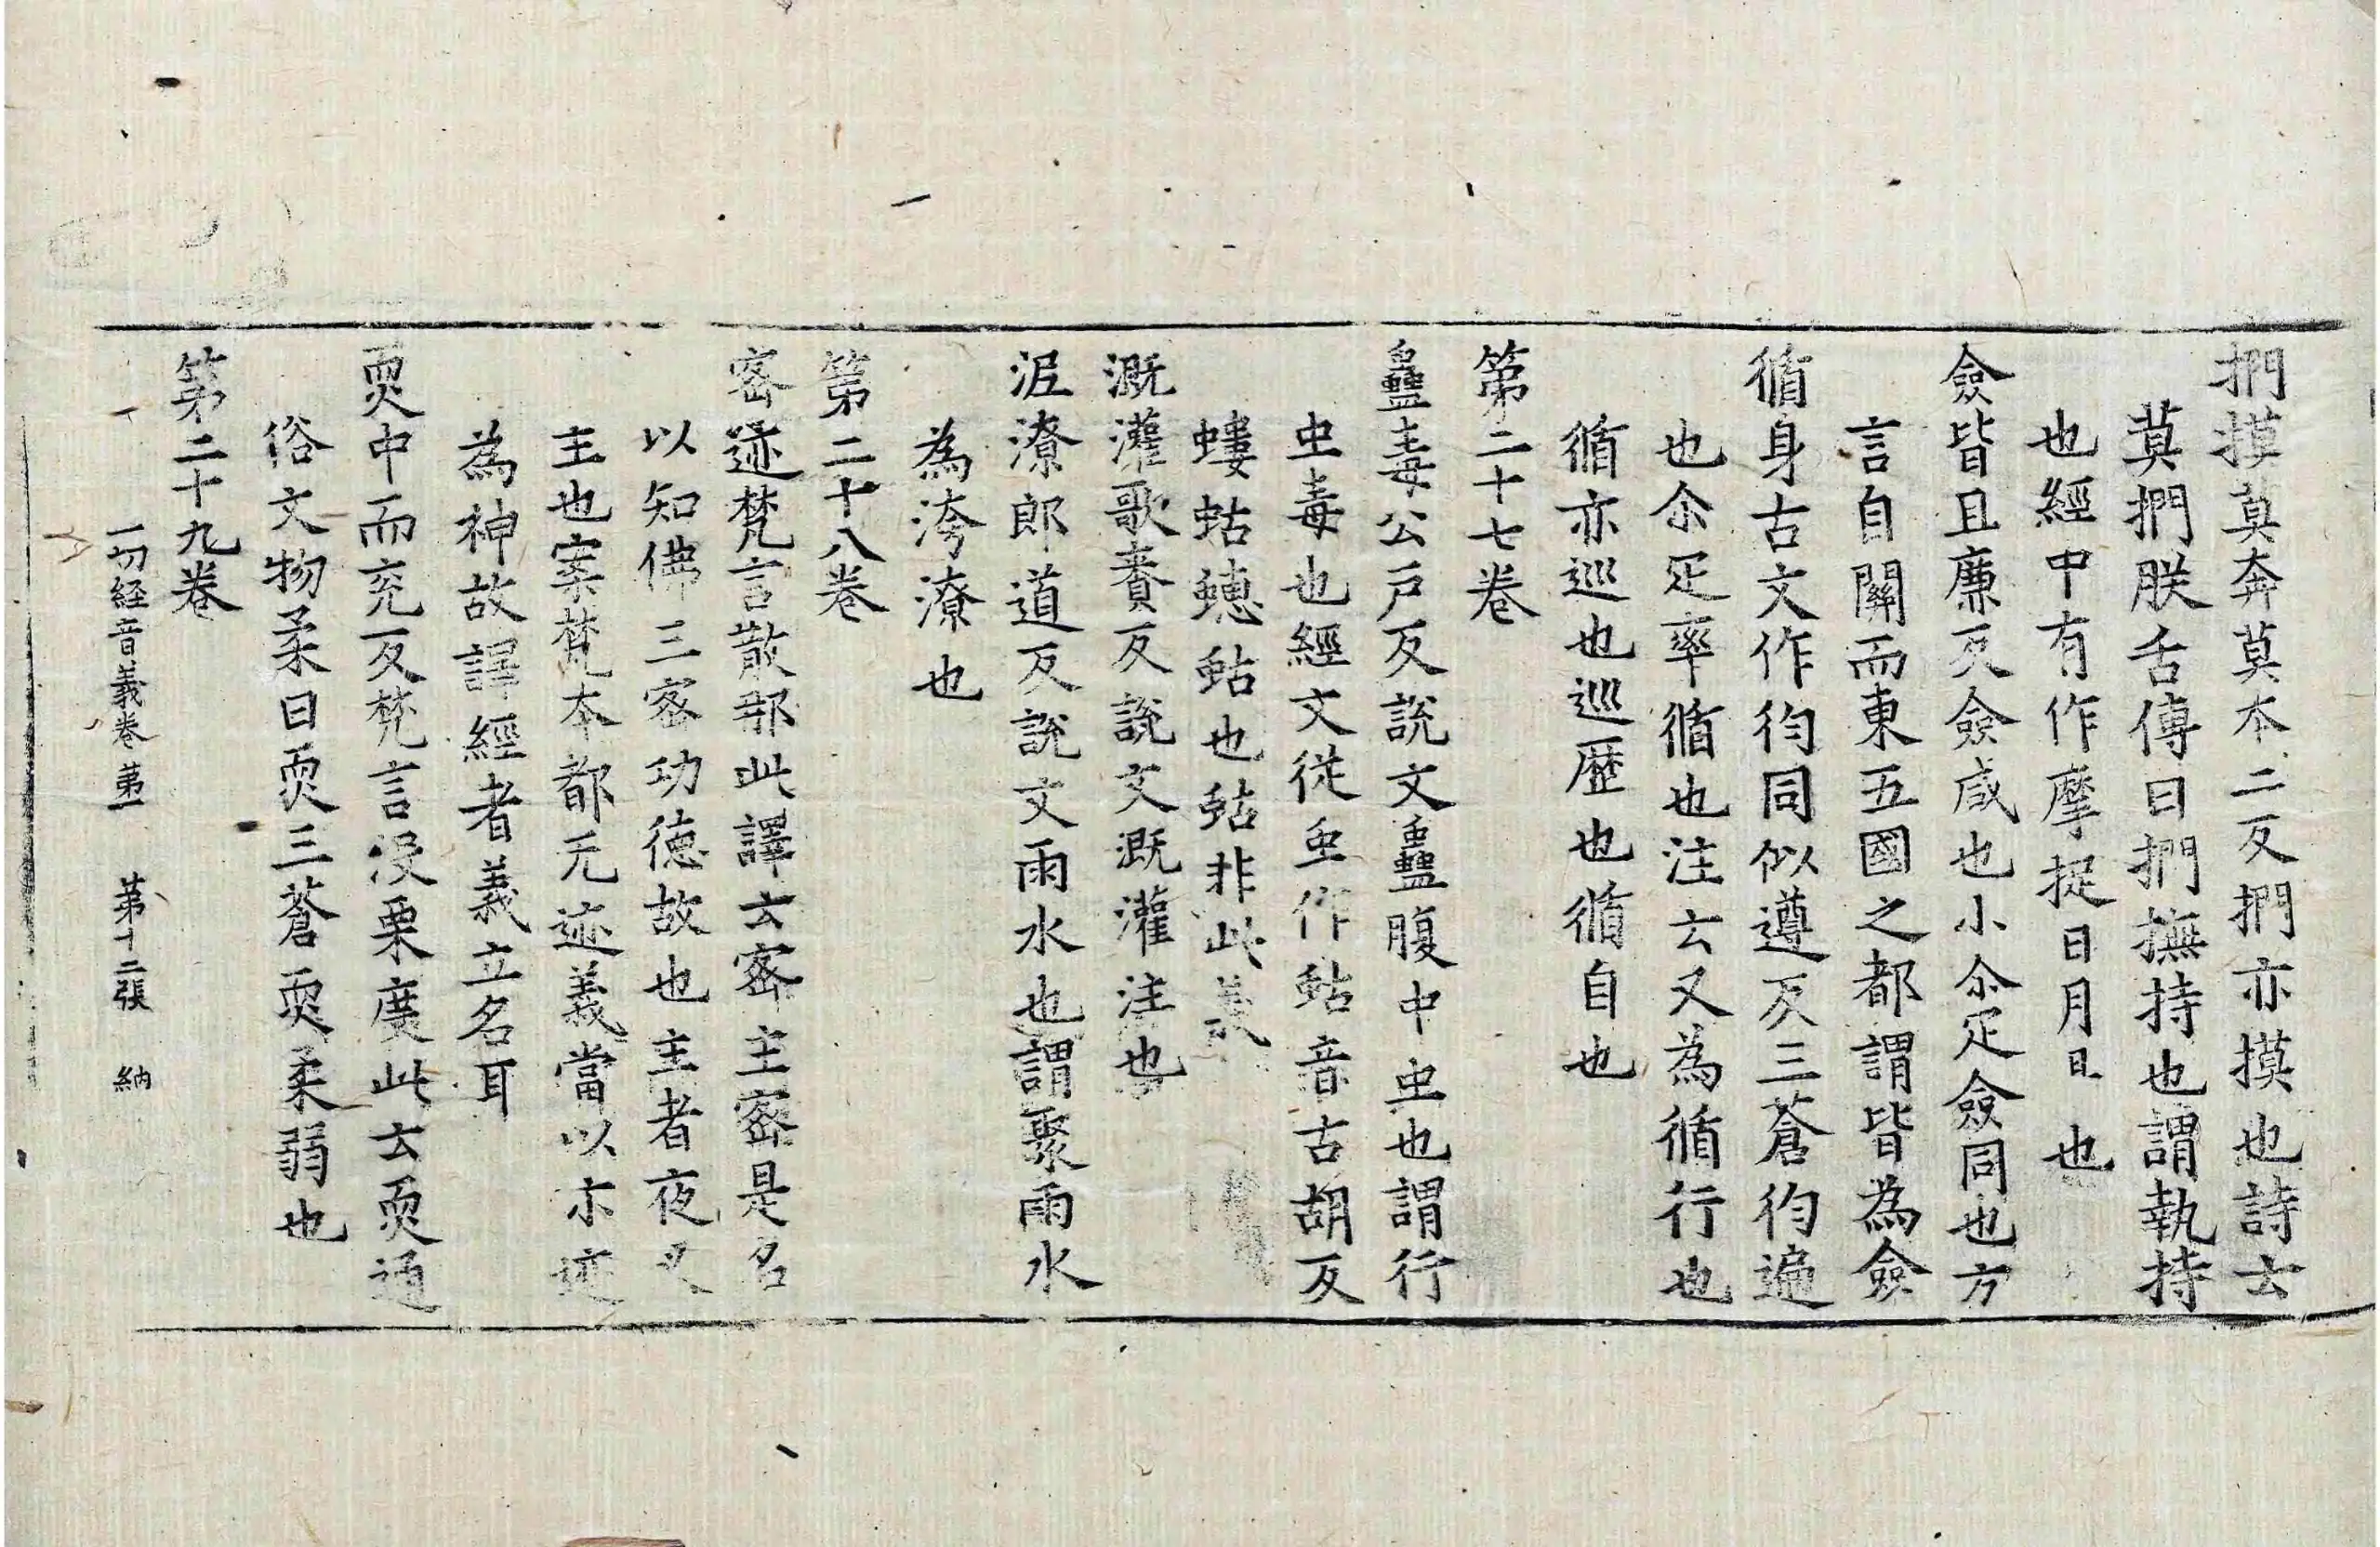 捫摸莫奔莫本二反捫亦摸也詩云
莫捫朕舌傳曰捫撫持也謂執持
也經中有作摩捉日月是也
僉皆且廉反僉咸也小尒疋僉同也方
言自關而東五國之都謂皆為僉
循身古文作徇同似遵反三蒼徇遍
也尒疋率循也注云又為循行也
循亦巡也巡歷也循自也
第二十七卷
蠱毒公戶反說文蠱腹中虫也謂行
虫毒也經文從虫作蛄音古胡反
螻蛄蟪蛄也蛄非此義
溉灌歌賚反說文溉灌注也
泥潦郎道反說文雨水也謂聚雨水
為洿潦也
第二十八卷
密迹梵言散那此譯云密主密是名
以知佛三密功德故也主者夜叉
主也案梵本都无迹義當以示迹
為神故譯經者義立名耳
耎中而兗反梵言没栗度此云耎通
俗文物柔曰耎三蒼耎柔弱也
第二十九卷
一切経音義卷苐一 第十二張 納